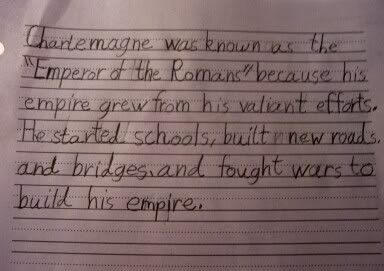 Charlemagne was known as the
"Emperor of the Romans" because his
empire grew from his valiant efforts.
He started schools, built new roads,
and bridges, and fought wars to
build his empire.